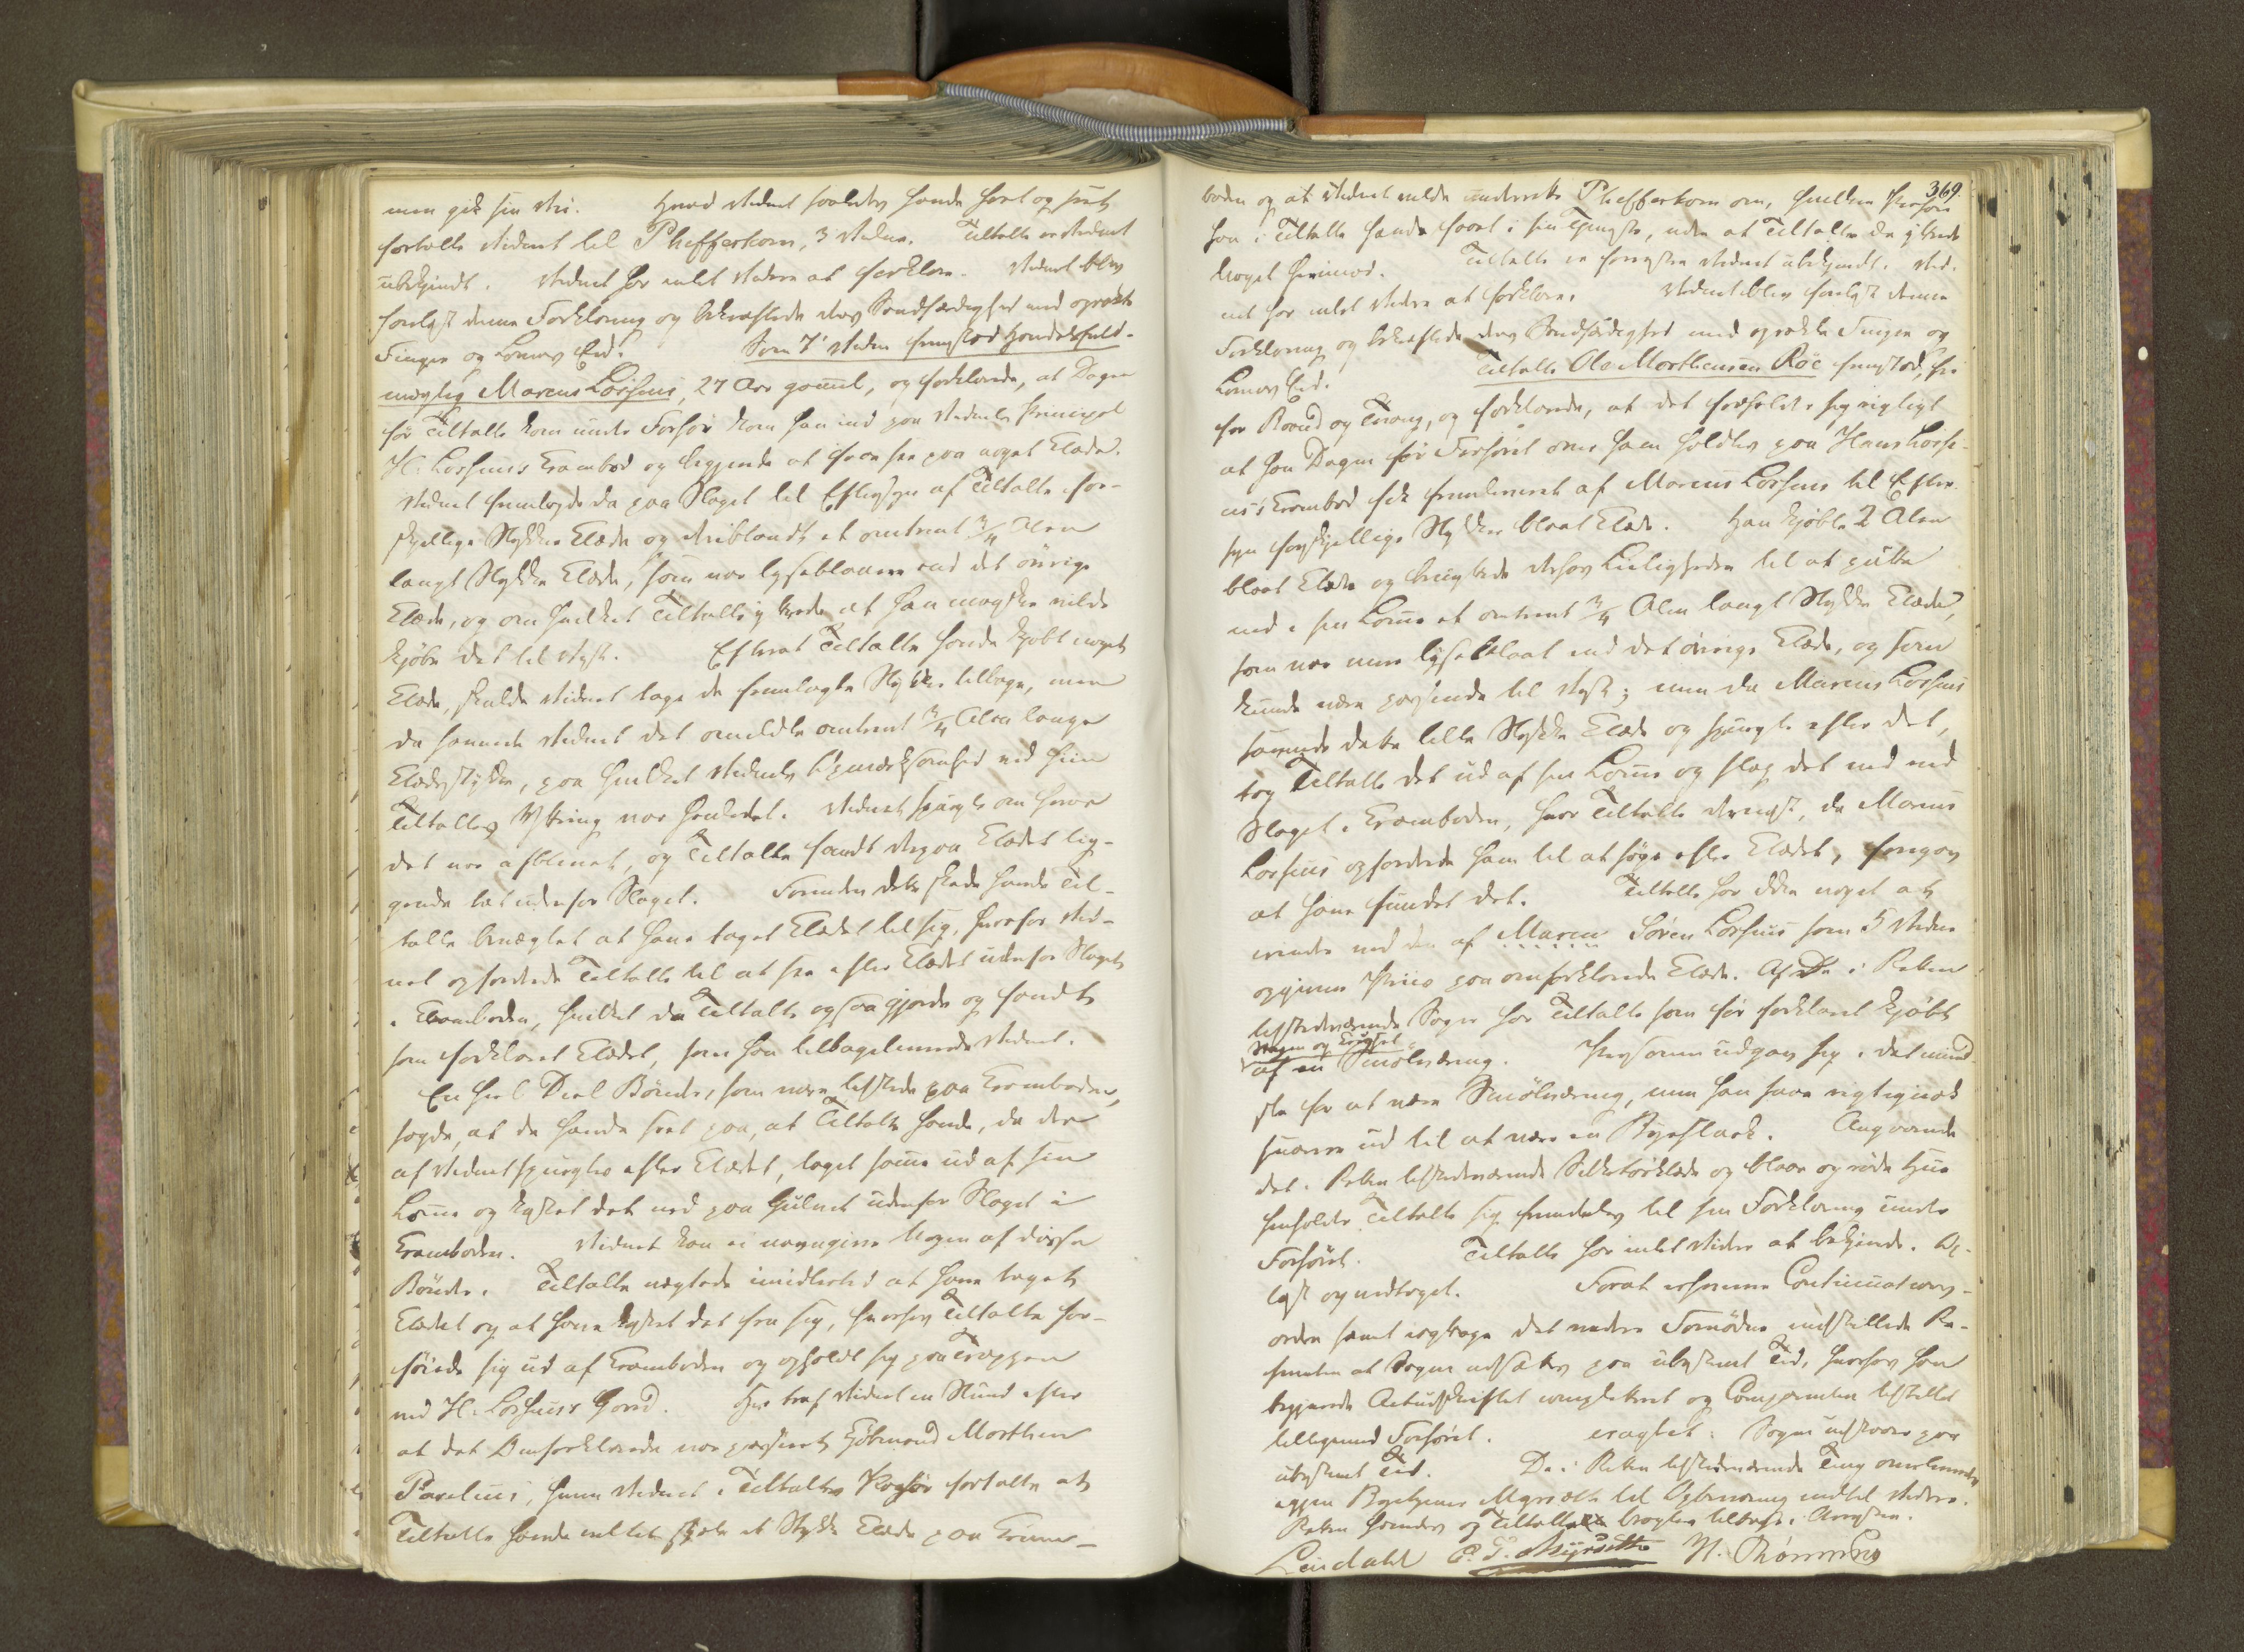 men gik sin Vei. Hvad Vidnet saaledes havde hørt og seet,
fortalte Vidnet til Pheffferkorn, 3 Vidne. Tiltalte er Vidnet
ubekjendt. Vidnet har intet videre at forklare. Vidnet blev
forelæst denne Forklaring og bekræftede dens Sandfærdighed med oprakte
Fingre og Lovens Eed. Som 7' Vidne fremstod Handelsfuld-
mægtig Marcus Lossius, 27 Aar gammel, og forklarede, at Dagen
før Tiltalte kom under Forhør kom han ind paa Vidnets Principal
H. Lossius's Krambod og begjerede at faae see paa noget Klæde.
Vidnet fremlagde da paa Slaget til Eftersyn af Tiltalte for-
skjellige Stykker Klæde og deriblandt et omtrent 3/4 Alen
langt Stykke Klæde, som var lyseblaaere end det øvrige
Klæde, og om hvilket Tiltalte yttrede at han maaske vilde
kjøbe det til Vest. Efterat Tiltalte havde kjøbt noget
Klæde, skulde Vidnet tage de fremlagte Stykker tilbage, men
da savnede Vidnet det omeldte omtrent 3/4 Alen lange
Klædestykke, paa hvilket Vidnets Opmærksomhed ved hiin
Tiltaltes Yttring var henledet. Vidnet spurgte om hvor
det var afblevet, og Tiltalte fandt derpaa Klædet lig-
gende tæt udenfor Slaget. Forinden dette skede havde Til-
talte benægtet at have taget Klædet til sig, hvorfor Vid-
net opfordrede Tiltalte til at see efter Klædet udenfor Slaget
i Kramboden, hvilket da Tiltalte ogsaa gjorde og fandt
som forklaret Klædet, som han tilbageleverede Vidnet.
En heel Deel Bønder, som vare tilstede paa Kramboden,
sagde, at de havde seet paa, at Tiltalte havde, da der
af Vidnet spurgtes efter Klædet, taget samme ud af sin
Lomme og kastet det ned paa Gulvet udenfor Slaget i
Kramboden. Vidnet kan ei navngive Nogen af disse
Bønder. Tiltalte nægtede imidlertid at have taget
Klædet og at have kastet det fra sig, hvorpaa Tiltalte for-
føiede sig ud af Kramboden og opholdt sig paa Trappen
ved H. Lossius's Gaard. Her traf Vidnet en Stund efter
at det Omforklarede var passeret Kjøbmand Morthen
Parelius, hvem Vidnet i Tiltaltes Paahør fortalte at
Tiltalte havde villet stjæle et Stykke Klæde paa Kram-
369.
boden og at Vidnet vilde underrette Pheffferkorn om, hvilken Person
han i Tiltalte havde faaet i sin Tjeneste, uden at Tiltalte da yttrede
Noget herimod. Tiltalte er forresten Vidnet ubekjendt. Vid-
net har intet videre at forklare. Vidnet blev forelæst denne
Forklaring og bekræftede dens Sandfærdighed med oprakte Fingre og
Lovens Eed. Tiltalte Ole Morthensen Röe fremstod, fri
for Baand og Tvang, og forklarede, at det forholder sig rigtigt
at han Dagen før Forhøret over ham holdtes paa Hans Lossi-
us's Krambod fik fremleveret af Marcus Lossius til Efter-
syn forskjellige Stykker blaat Klæde. Han kjøbte 2 Alen
blaat Klæde og benyttede derhos Leiligheden til at putte
ned i sin Lomme et omtrent 3/4 Alen langt Stykke Klæde,
som var mere lyseblaat end det øvrige Klæde, og som
kunde være passende til Vest; men da Marcus Lossius
savnede dette lille Stykke Klæde og spurgte efter det,
tog Tiltalte det ud af sin Lomme og slap det ned ved
Slaget i Kramboden, hvor Tiltalte dernæst, da Marcus
Lossius opfordrede ham til at søge efter Klædet, foregav
at have fundet det. Tiltalte har ikke noget at
erindre ved den af Maren Søren Lossius som 5 Vidne
opgivne Priis paa omforklarede Klæde. Af De i Retten
tilstedeværende Sager har Tiltalte som før forklaret kjøbt
Vesten og
af en Smölnæring. Personen udgav sig i det mind-
ste for at være Smölnæring, men han saae rigtignok
snarere ud til at være en Byeslask. Angaaende
det i Retten tilstedeværende Silketørklæde og blaae og røde Hue
henholdt Tiltalte sig fremdeles til sin Forklaring under
Forhøret. Tiltalte har intet videre at bekjende. Op-
læst og vedtaget. Forat erhverve Continuations-
ordre samt iagttage det videre Fornødne indstillede Re-
ferenten at Sagen udsættes paa ubestemt Tid, hvorhos han
begjerede Actudskriftet completeret og Comparenten tilstillet
tilligemed Forhøret. eragtet: Sagen udstaaer paa
ubestemt Tid. De i Retten tilstedeværende Ting overleveredes
igjen Byetjener Myrsæth til Opbevaring indtil videre.
Retten hævedes og Tiltalte bragtes tilbage i Arresten.
Lindahl P. T. Myrsæth H. Rönning